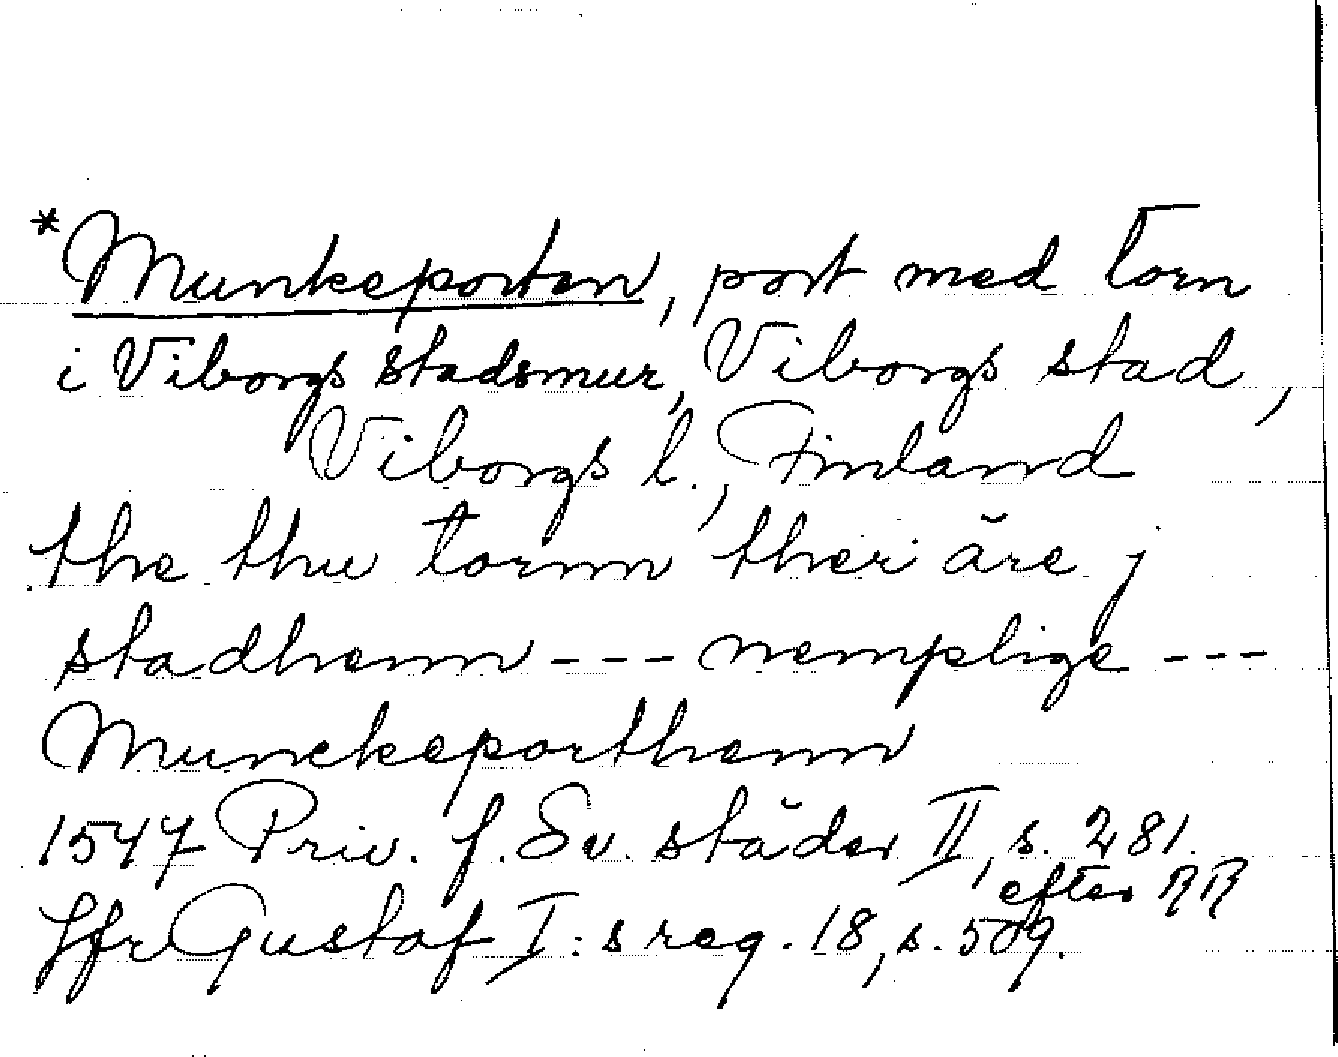 *Munkeporten, port med torn
i Viborgs stadsmur, Viborgs stad,
Viborgs l., Finland
the thu tornn ther äre j
stadhenn --- nemplige ---
Munckeporthenn
1547 Priv. f. Sv. städer II, s. 281.
efter RR
Jfr Gustaf I:s reg. 18, s. 509.